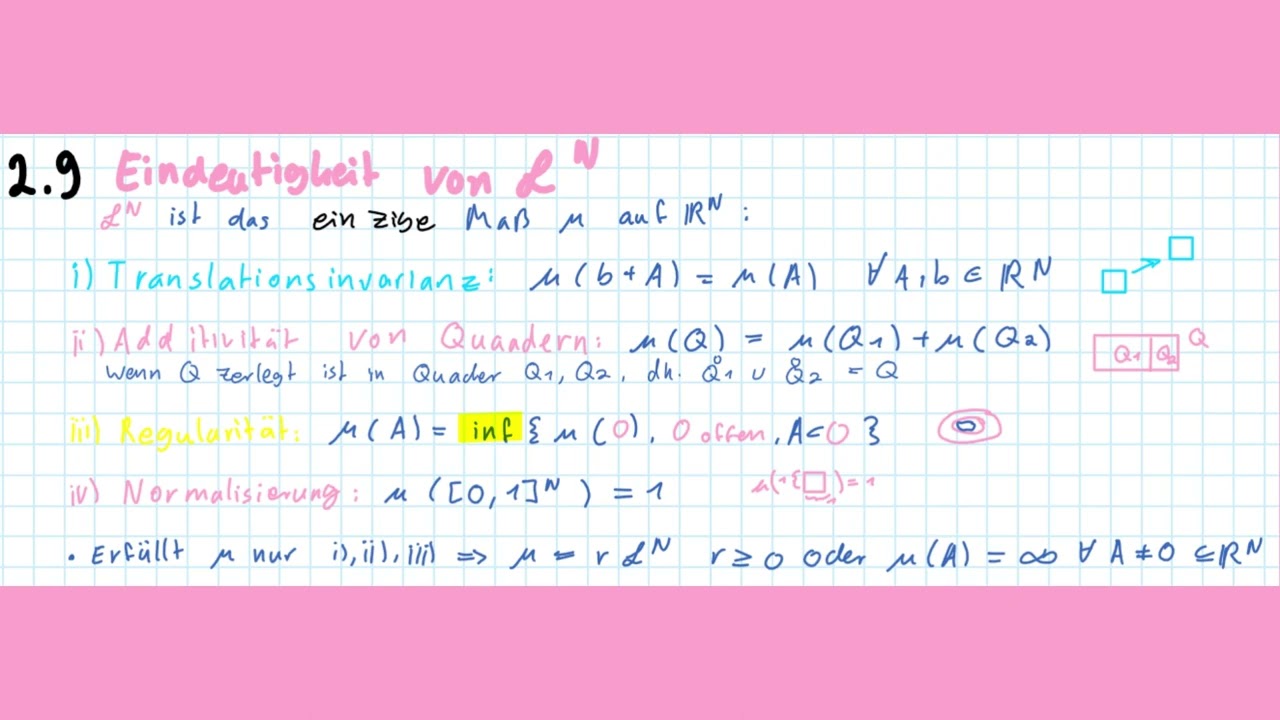 2.9 Eindeutigkeit von ℒᴺ
ℒᴺ ist das einzige Maß μ auf ℝᴺ :
i) Translationsinvarianz: μ(b+A) = μ(A) ∀ A, b ∈ ℝᴺ
ii) Additivität von Quadern: μ(Q) = μ(Q1) + μ(Q2)
Q1 Q2 Q
wenn Q zerlegt ist in Quader Q1, Q2, dh. Q̊1 ∪ Q̊2 = Q
iii) Regularität: μ(A) = inf { μ(O), O offen, A⊂O }
iv) Normalisierung: μ([0,1]ᴺ) = 1
• Erfüllt μ nur i), ii), iii) ⇒ μ = r ℒᴺ r ≥ 0 oder μ(A) = ∞ ∀ A ≠ 0 ⊆ ℝᴺ